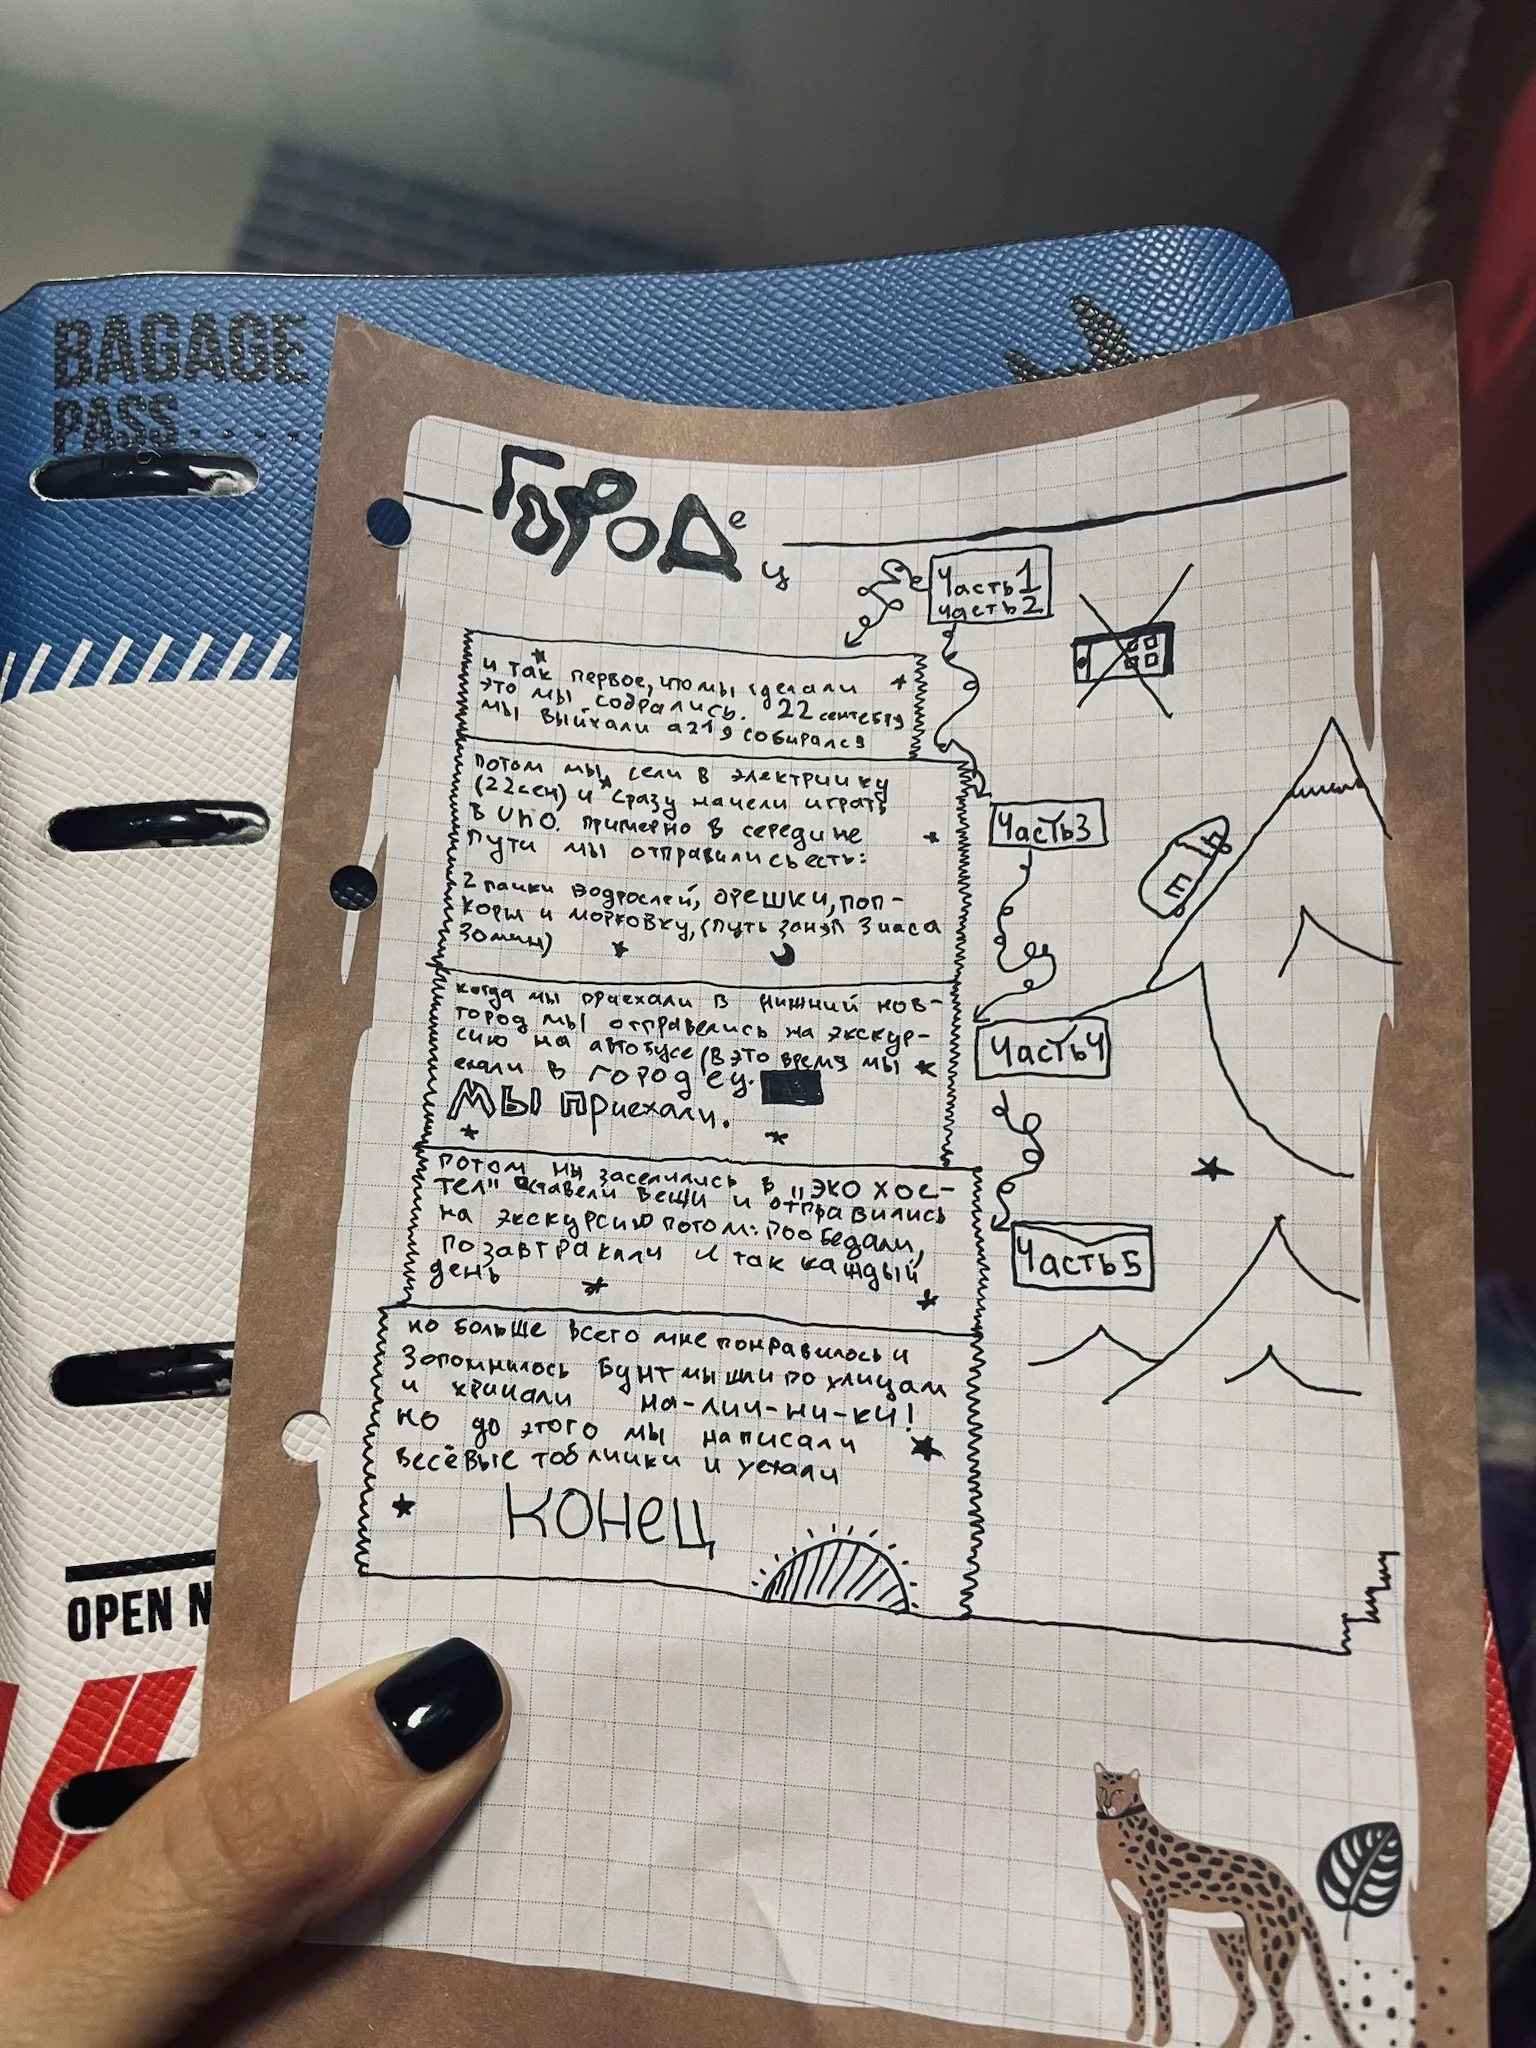 BAGAGE
PASS
ГОРОДец
Часть1
часть2
и так первое, что мы сделали
это мы собрались. 22 сентября
мы выйхали а 21 я собирался
потом мы сели в электриику
(22 сен) и сразу начели играть
в UNO. примерно в середине
пути мы отправились есть:
2 пачки водрослей, орешки, поп-
корн и морковку, (путь занял 3 часа
30мин)
Часть3
когда мы приехали в нижний нов-
город мы отправелись на экскур-
сию на автобусе (в это время мы
ехали в городец.
Мы приехали.
Часть4
потом мы заселились в "ЭКО ХОС-
ТЕЛ" оставели вещи и отправились
на экскурсию потом: пообедали,
позавтракали и так каждый
день
Часть5
но больше всего мне понравилось и
запомнилось бунт мы шли по улицам
и кричали на-лич-ни-ки!
но до этого мы написали
весёвые тоблички и уехали
конец
OPEN N